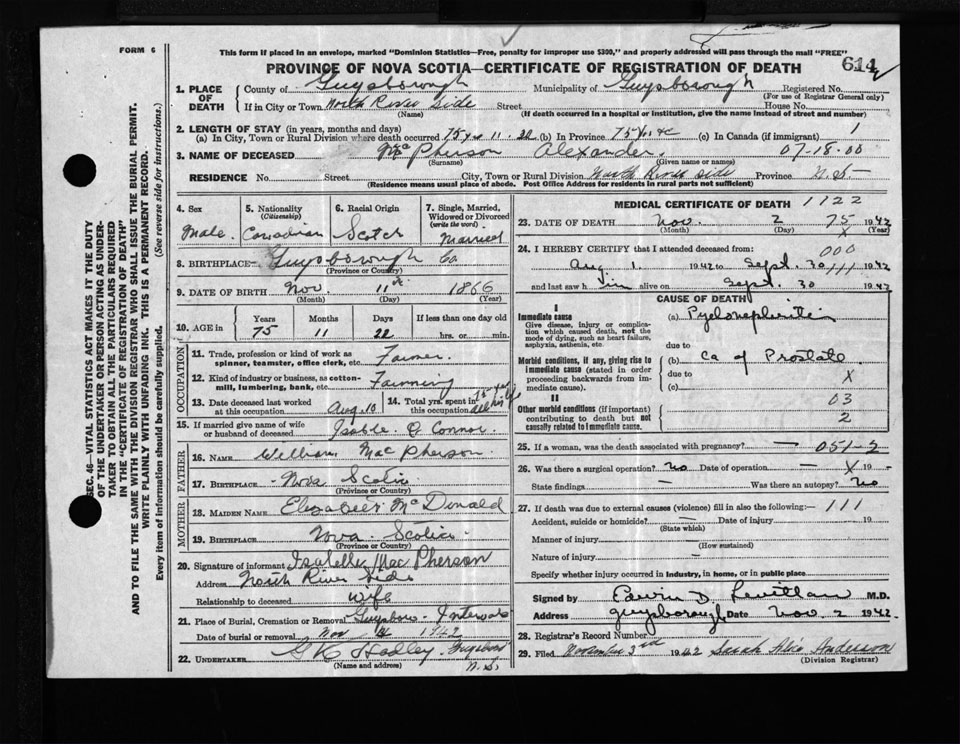 FORM 6
This form if placed in an envelope, marked "Dominion Statistics—Free, penalty for improper use $300," and properly addressed will pass through the mail "FREE"
PROVINCE OF NOVA SCOTIA—CERTIFICATE OF REGISTRATION OF DEATH
614
SEC. 46—VITAL STATISTICS ACT MAKES IT THE DUTY
OF THE UNDERTAKER OR PERSON ACTING AS UNDER-
TAKER TO OBTAIN ALL THE PARTICULARS REQUIRED
IN THE "CERTIFICATE OF REGISTRATION OF DEATH"
AND TO FILE THE SAME WITH THE DIVISION REGISTRAR WHO SHALL ISSUE THE BURIAL PERMIT.
WRITE PLAINLY WITH UNFADING INK. THIS IS A PERMANENT RECORD.
Every item of information should be carefully supplied. (See reverse side for instructions.)
1. PLACE OF DEATH
County of Guysborough Municipality of Guysborough Registered No.
(For use of Registrar General only)
If in City or Town North River Side Street House No.
(Name) (If death occurred in a hospital or institution, give the name instead of street and number)
2. LENGTH OF STAY (in years, months and days)
(a) In City, Town or Rural Division where death occurred 75 yrs 11. 22 (b) In Province 75 yrs &c (c) In Canada (if immigrant) 1
3. NAME OF DECEASED McPherson Alexander. 07-18.00
(Surname) (Given name or names)
RESIDENCE No. Street City, Town or Rural Division North River Side Province N.S—
(Residence means usual place of abode. Post Office Address for residents in rural parts not sufficient)
4. Sex Male.
5. Nationality (Citizenship) Canadian
6. Racial Origin Scotch
7. Single, Married, Widowed or Divorced (write the word) Married
8. BIRTHPLACE— Guysborough Co
(Province or Country)
9. DATE OF BIRTH Nov. 11th 1866
(Month) (Day) (Year)
10. AGE in Years Months Days If less than one day old
75 11 22 hrs. or min.
OCCUPATION
11. Trade, profession or kind of work as spinner, teamster, office clerk, etc. Farmer.
12. Kind of industry or business, as cotton-mill, lumbering, bank, etc. Farming
13. Date deceased last worked at this occupation Aug. 10
14. Total yrs. spent in this occupation all his life
15. If married give name of wife or husband of deceased Isable. O Connor.
FATHER
16. NAME William MacPherson.
17. BIRTHPLACE Nova Scotia
(Province or Country)
MOTHER
18. MAIDEN NAME McDonald
19. BIRTHPLACE Nova Scotia
(Province or Country)
20. Signature of informant Isabelle MacPherson
Address North River Side
Relationship to deceased wife
21. Place of Burial, Cremation or Removal Guysboro. Intervale
Date of burial or removal Nov 4 1942
22. UNDERTAKER Hadley. Guysboro N.S.
(Name and address)
MEDICAL CERTIFICATE OF DEATH 1122
23. DATE OF DEATH Nov. 2 75 1942
(Month) (Day) X (Year)
24. I HEREBY CERTIFY that I attended deceased from: 000
Aug 1. 1942 to Sept. 30 111 1942
and last saw him alive on Sept. 30 1942
CAUSE OF DEATH
I
Immediate cause
Give disease, injury or complication which caused death, not the mode of dying, such as heart failure, asphyxia, asthenia, etc.
(a) Pyelonephritis
due to
Morbid conditions, if any, giving rise to immediate cause (stated in order proceeding backwards from immediate cause).
(b) Ca of Prostate
due to X
(c)
II
Other morbid conditions (if important) contributing to death but not causally related to immediate cause.
03
2
25. If a woman, was the death associated with pregnancy? — 051-2
26. Was there a surgical operation? No Date of operation — X 19 —
State findings — Was there an autopsy? No
27. If death was due to external causes (violence) fill in also the following:— 111
Accident, suicide or homicide? — Date of injury 19
(State which)
Manner of injury
(How sustained)
Nature of injury —
Specify whether injury occurred in industry, in home, or in public place
Signed by M.D.
Address Guysborough Date Nov. 2 1942
28. Registrar's Record Number
29. Filed November 3rd 1942 Sarah Anderson
(Division Registrar)